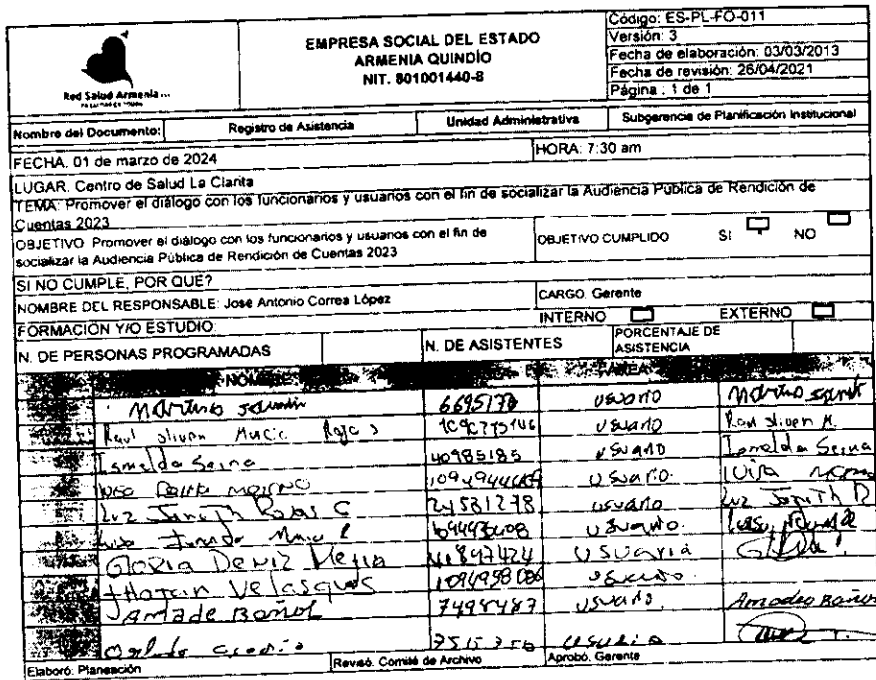 Red Salud Armenia
EMPRESA SOCIAL DEL ESTADO
ARMENIA QUINDÍO
NIT. 801001440-8
Código: ES-PL-FO-011
Versión: 3
Fecha de elaboración: 03/03/2013
Fecha de revisión: 26/04/2021
Página : 1 de 1
Nombre del Documento: Registro de Asistencia Unidad Administrativa Subgerencia de Planificación Institucional
FECHA. 01 de marzo de 2024 HORA: 7:30 am
LUGAR. Centro de Salud La Clarita
TEMA: Promover el diálogo con los funcionarios y usuarios con el fin de socializar la Audiencia Pública de Rendición de
Cuentas 2023
OBJETIVO Promover el diálogo con los funcionarios y usuarios con el fin de
socializar la Audiencia Pública de Rendición de Cuentas 2023
OBJETIVO CUMPLIDO SI NO
SI NO CUMPLE, POR QUÉ?
NOMBRE DEL RESPONSABLE: José Antonio Correa López CARGO. Gerente
FORMACIÓN Y/O ESTUDIO: INTERNO EXTERNO
N. DE PERSONAS PROGRAMADAS N. DE ASISTENTES PORCENTAJE DE
ASISTENCIA
NOMBRE
usuario
Raul stiven Murcia Rojas usuario Raul stiven M.
Ismelda Serna 40985185 usuario Ismelda Serna
usuario Luisa
Luz Janeth Rojas C 24581278 usuario Luz Janeth R
usuario
Gloria Deniz Mejia 41897424 usuaria
Jhojan Velasques usuario
Amade Bañol 7498487 usuario Amadeo Bañol
Orlando usuario
Elaboró: Planeación Revisó. Comité de Archivo Aprobó. Gerente